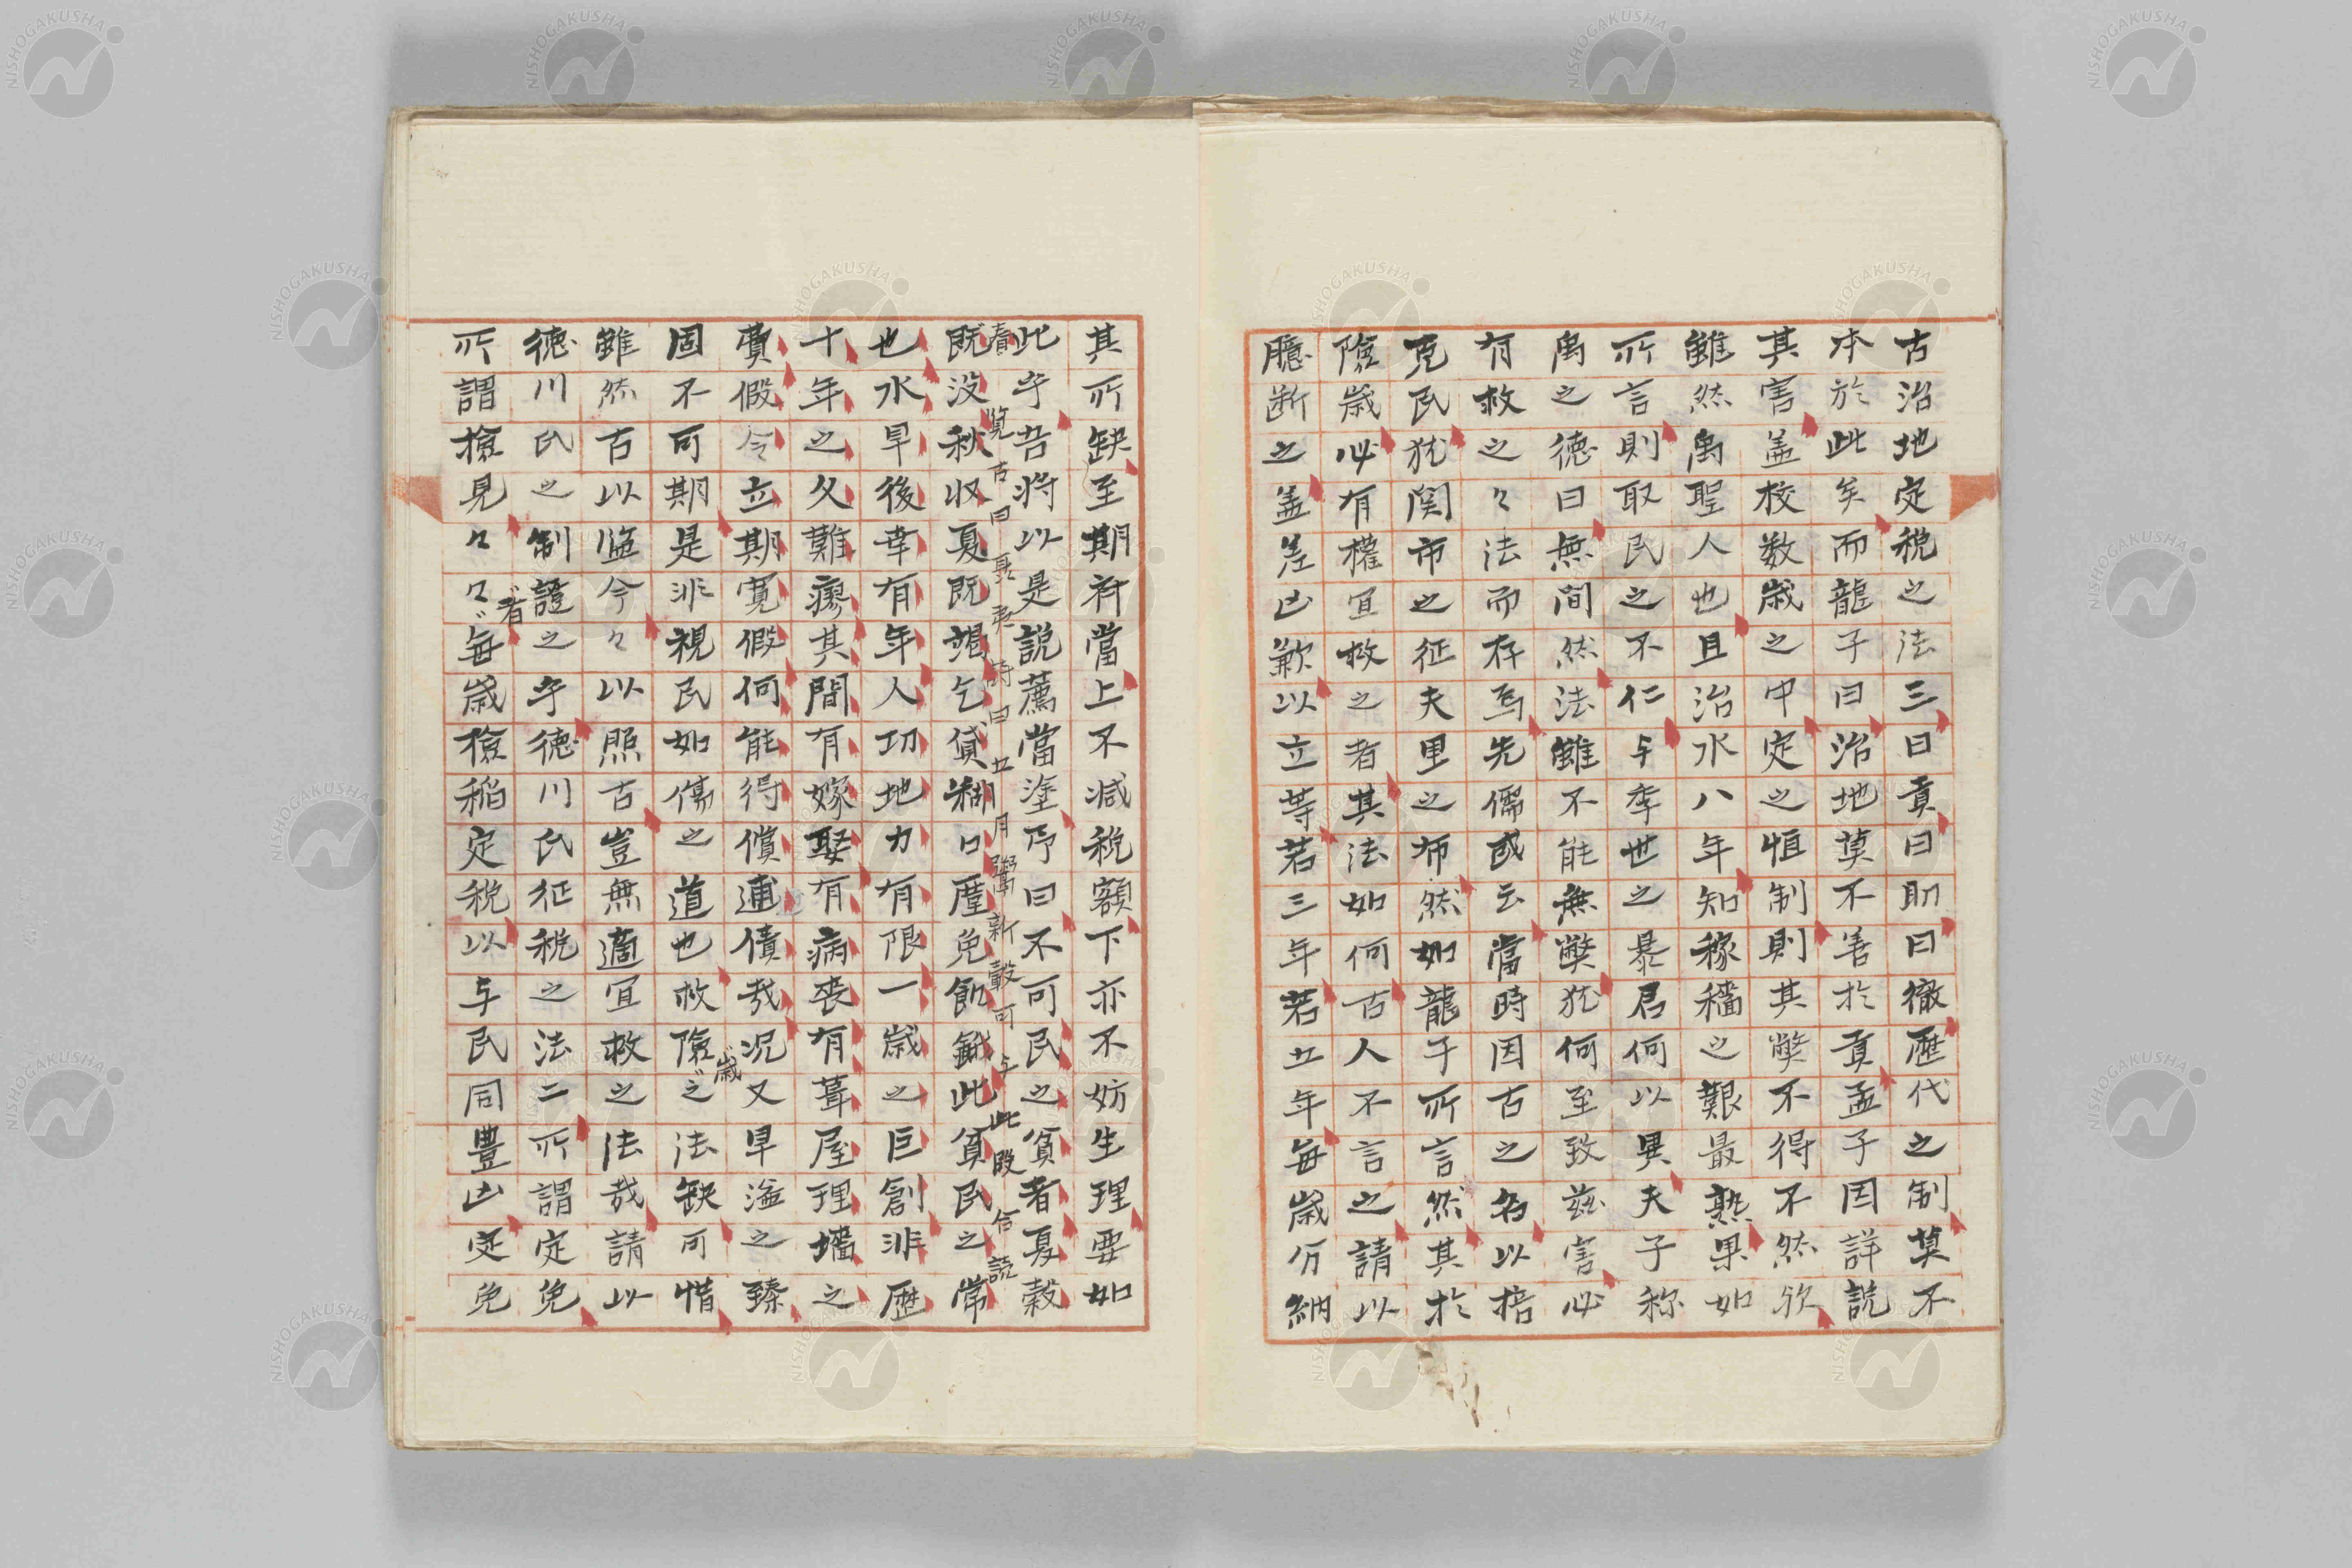 古治地定税之法三曰貢曰助曰徹歴代之制莫不
本於此矣而龍子曰治地莫不善於貢孟子因詳説
其害盖校数歳之中定之恒制則其弊不得不然欤
雖然禹聖人也且治水八年知稼穡之艱最熟果如
所言則取民之不仁与季世之暴君何以異夫子称
禹之徳曰無間然法雖不能無弊犹何至致兹害必
有救之々法而存焉先儒或云當時因古之名以掊
克民犹関市之征夫里之布然如龍子所言然其於
険歳必有權宜救之者其法如何古人不言之請以
臆断之盖差凶歉以立等若三年若五年毎歳分納
其所缺至期符當上不減税額下亦不妨生理要如
此乎吾将以是説薦當塗乃曰不可民之貧者夏穀
春覧古曰夷時曰五月鬻新穀可与此段合説
既没秋収夏既竭乞貸糊口厪免飢餓此貧民之常
也水旱後幸有年人功地力有限一歳之巨創非歴
十年之久難瘳其間有嫁娶有病丧有葺屋理墻之
費假令立期寛假何能得償逋債哉况又旱溢之臻
固不可期是非視民如傷之道也救険之法缺可惜
歳
雖然古以監今々以照古豈無適宜救之法哉請以
徳川氏之制證之乎徳川氏征税之法二所謂定免
者
所謂檢見々々毎歳檢稲定税以与民同豊凶定免
NISHOGAKUSHA